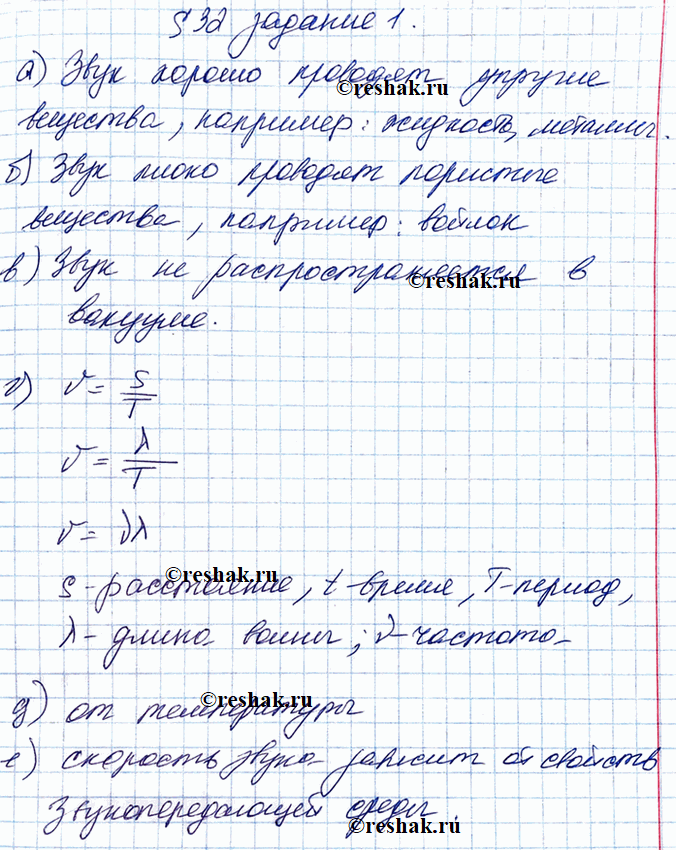 § 32 задание 1.
а) Звук хорошо проводят упругие
©reshak.ru
вещества, например: жидкость, металлы.
б) Звук плохо проводят пористые
вещества, например: войлок
в) Звук не распространяется в
©reshak.ru
вакууме.
г) v = S/T
v = λ/T
v = νλ
©reshak.ru
S - расстояние, t - время, T - период,
λ - длина волны; ν - частота
©reshak.ru
д) от температуры
е) скорость звука зависит от свойств
звукопередающей среды.
©reshak.ru